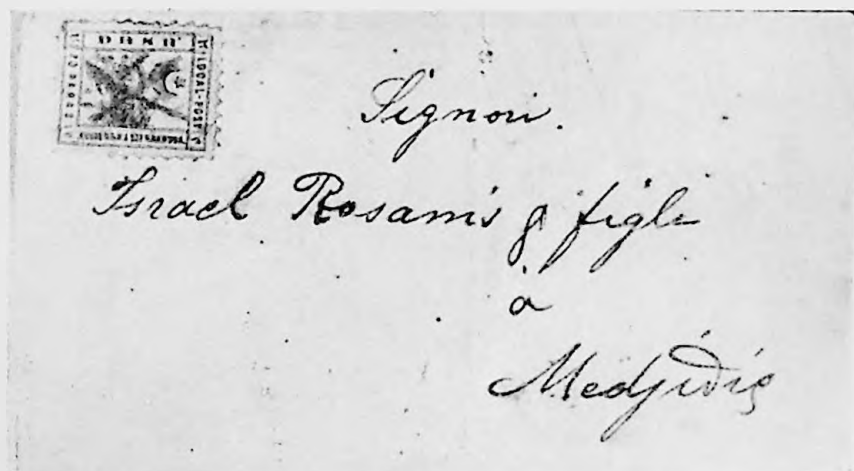 LOCAL-POST
Signori.
Israel Rosanis & figli
à
Medjidiè